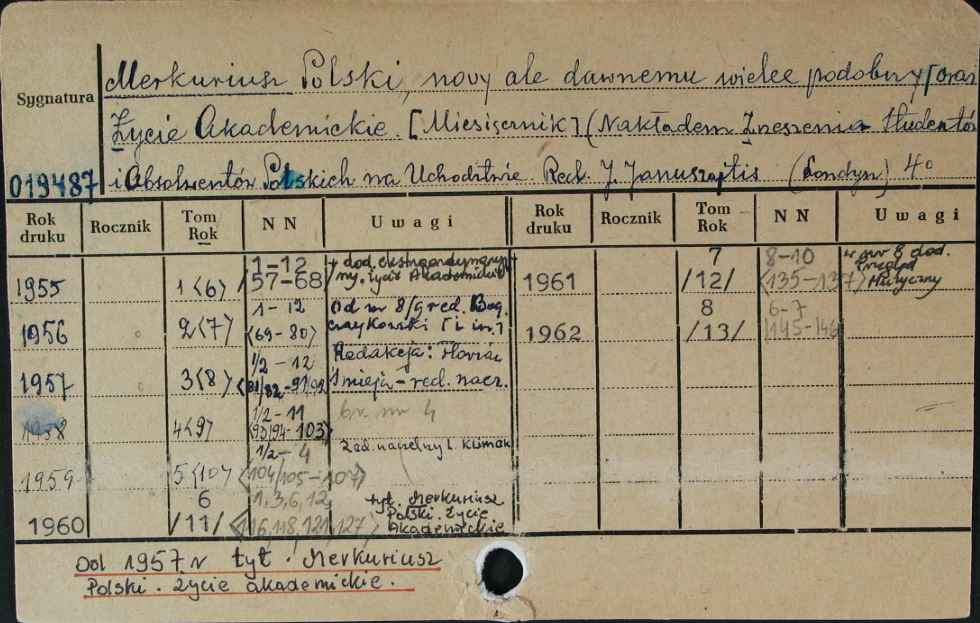 Merkuriusz Polski, nowy ale dawnemu wielce podobny [oraz
Sygnatura
Życie Akademickie. [Miesięcznik] (Nakładem Zrzeszenia Studentów
019487 i Absolwentów Polskich na Uchodźtwie. Red. J. (Londyn) 4°
Rok druku Rocznik Tom Rok NN Uwagi Rok druku Rocznik Tom Rok NN Uwagi
1955 1 <6> 1-12 /57-68/ + dod. Życie Akademickie
1961 7 /12/ 8-10 <135-137> w nr 8 dod. Przegląd Muzyczny
1956 2<7> 1-12 <69-80> Od nr 8/9 red. Bog. Czaykowski [i in.]
1962 8 /13/ 6-7 /145-146
1957 3<8> 1/2-12 <81/82-91/92> Redakcja: Florian Śmieja - red. nacz.
1958 4<9> 1/2-11 <93/94-103> br. nr 4
1959 5<10> 1/2-4 <104/105-107> nacz. L. Kliman
1960 6 /11/ 1,3,6,12, <116,118,121,127> tyt. Merkuriusz Polski. Życie Akademickie
Od 1957 r tyt. Merkuriusz
Polski. Życie akademickie.